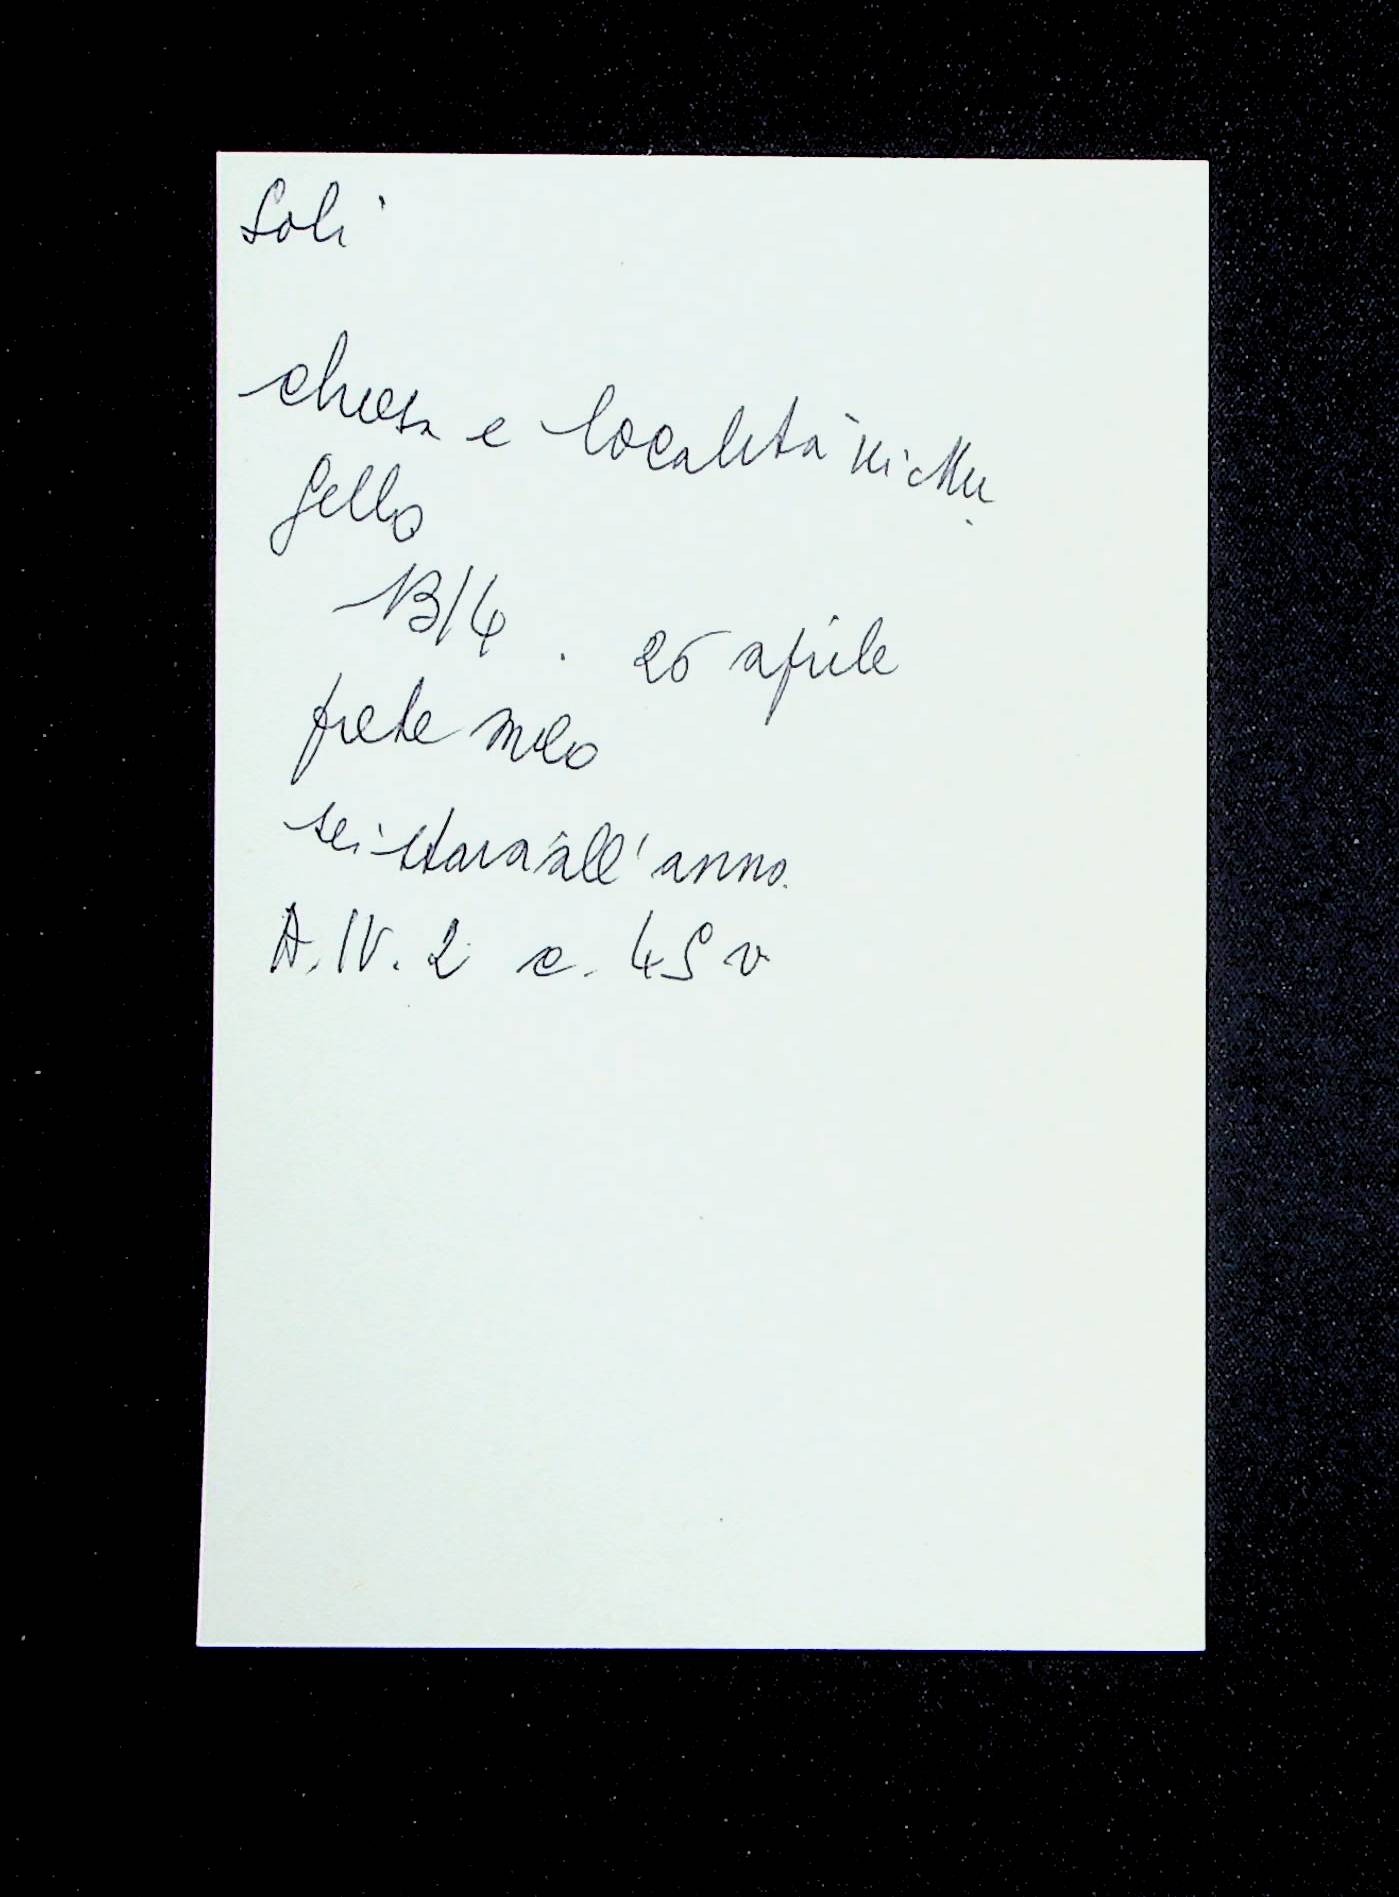 Soli
chiesa e località in Mu
gello
1314. 26 aprile
prete meo
sei staia all'anno.
A.IV.2 c. 45 v